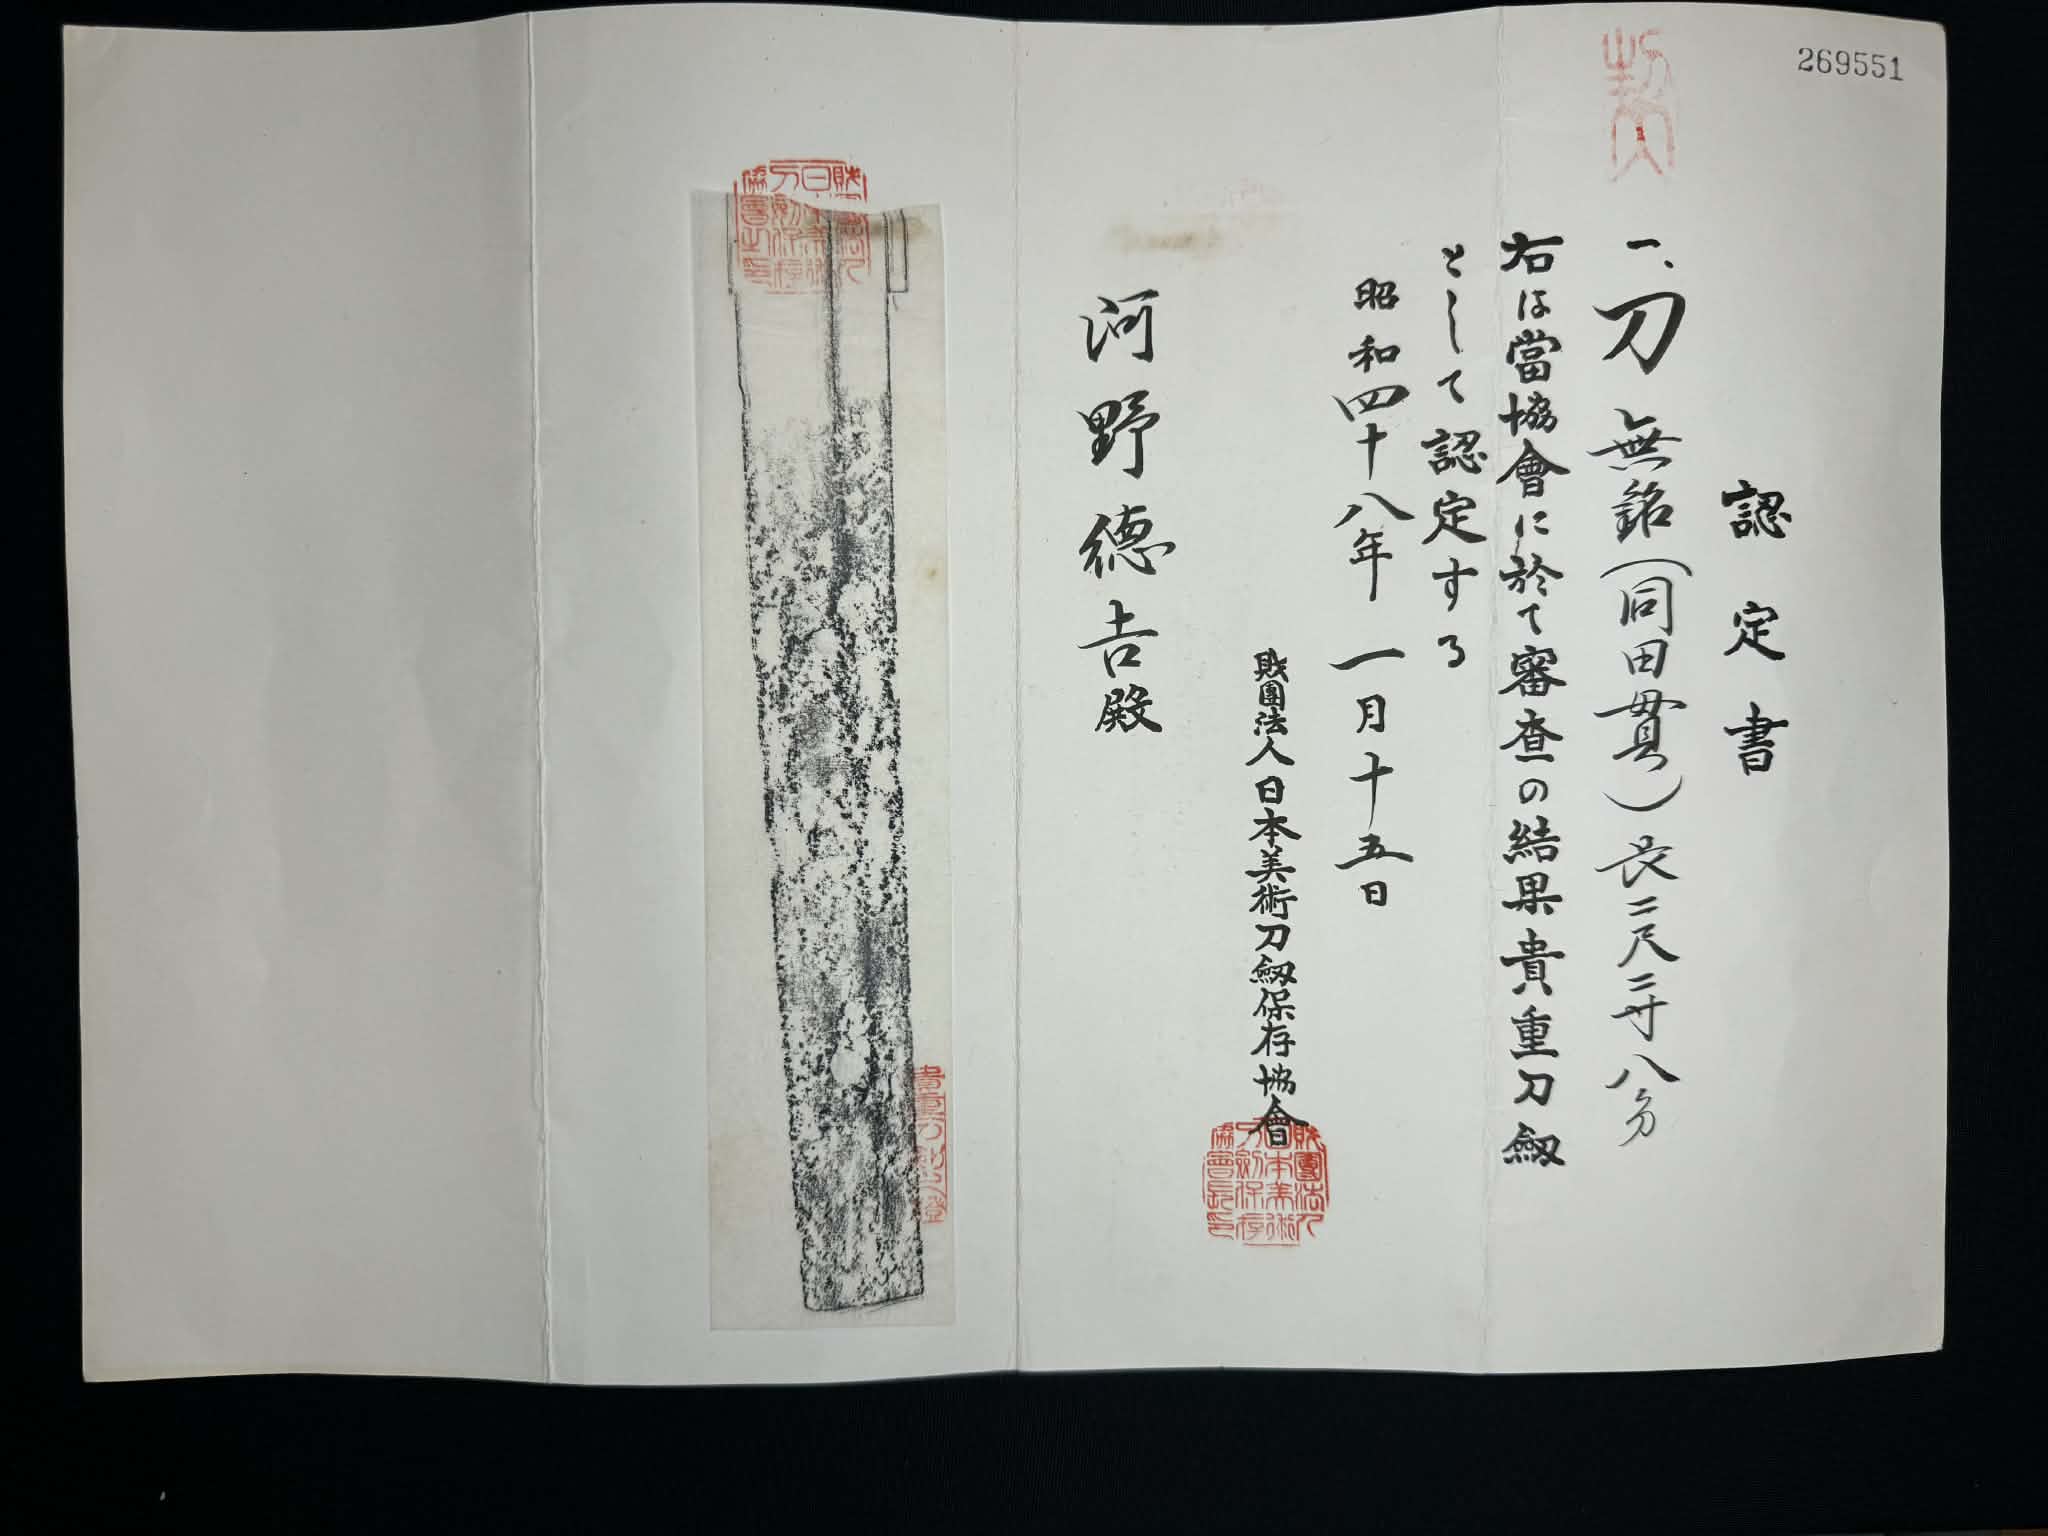 269551
認定書
一、刀 無銘(同田貫)長二尺二寸八分
右は當協會に於て審査の結果貴重刀劔
として認定する
昭和四十八年一月十五日
財團法人日本美術刀劔保存協會
財團法人日本美術刀劍保存協會長印
河野徳吉殿
貴重刀劍之證